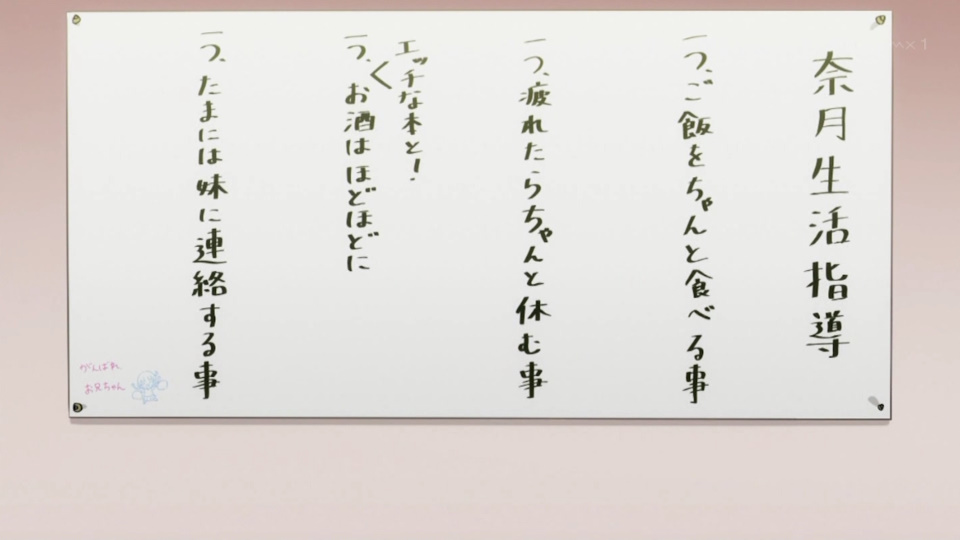 奈月生活指導
一つ、ご飯をちゃんと食べる事
一つ、疲れたらちゃんと休む事
エッチな本と!
一つ、お酒はほどほどに
一つ、たまには妹に連絡する事
がんばれ
お兄ちゃん